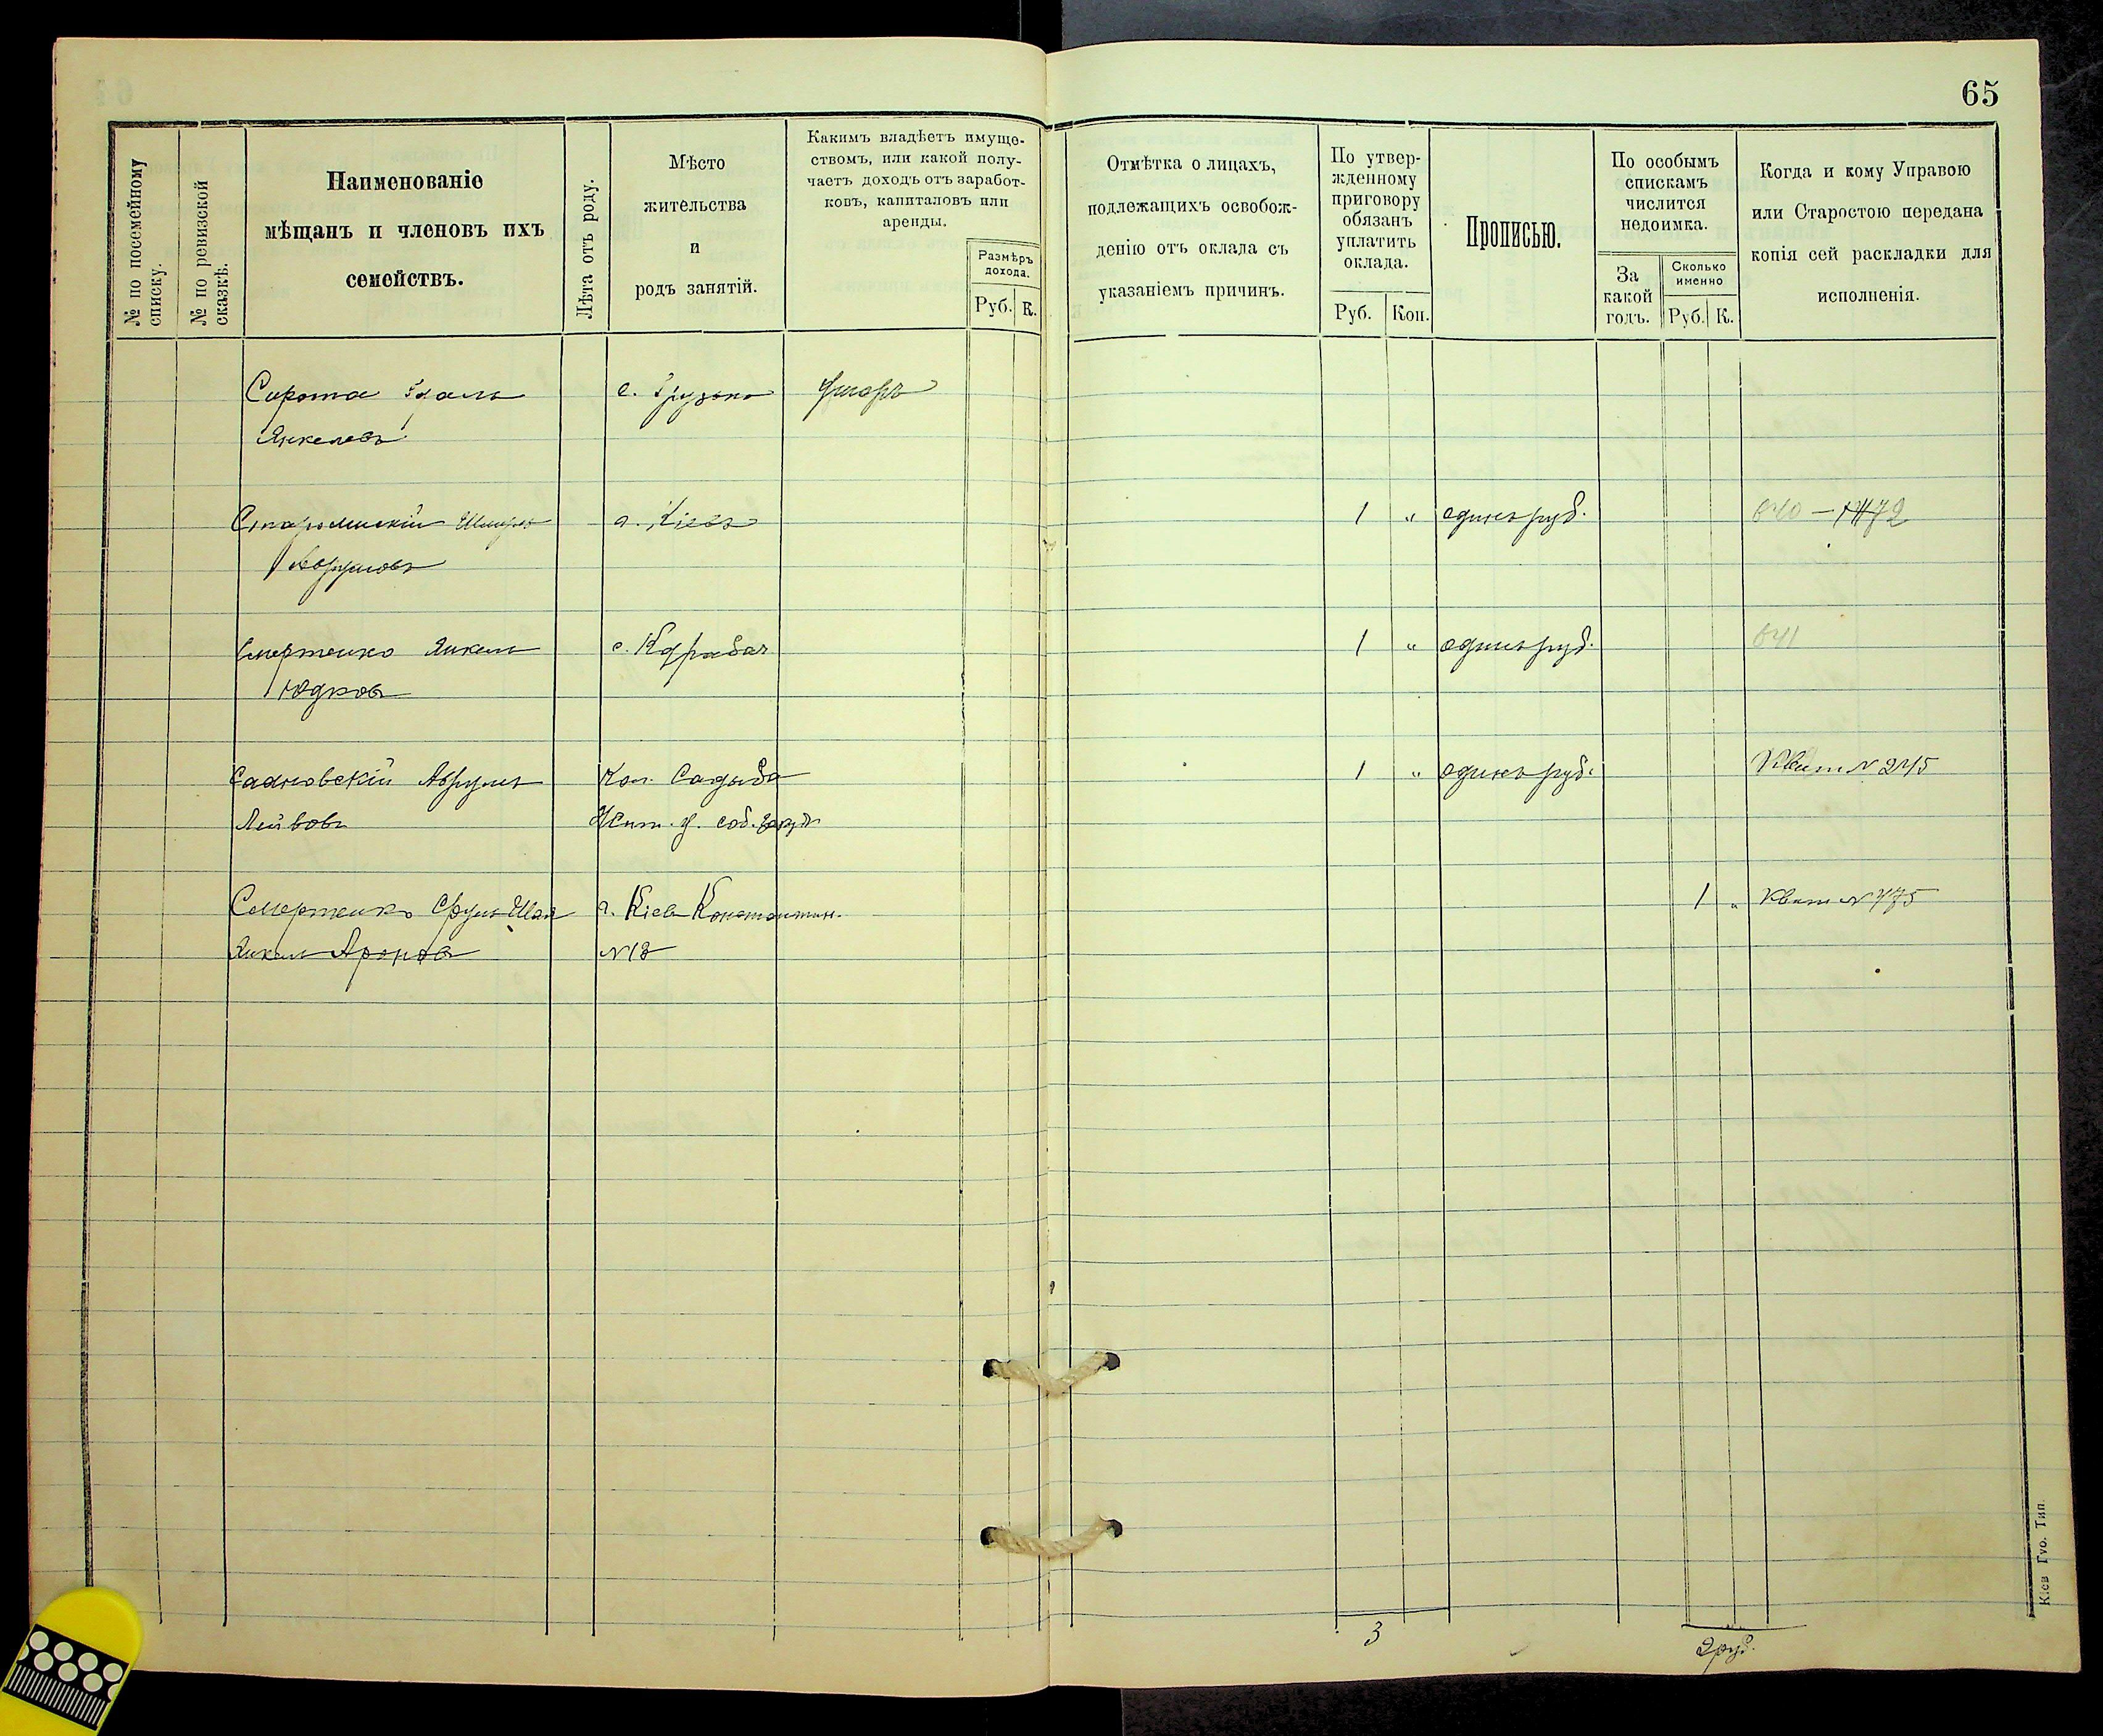 65
№ по посемейному списку.
№ по ревизской сказкѣ.
Наименованіе
мѣщанъ и членовъ ихъ
семействъ.
Лѣта отъ роду.
Мѣсто
жительства
и
родъ занятій.
Какимъ владѣетъ имуще-
ствомъ, или какой полу-
чаетъ доходъ отъ заработ-
ковъ, капиталовъ или
аренды.
Размѣръ
дохода.
Руб. К.
Отмѣтка о лицахъ,
подлежащихъ освобож-
денію отъ оклада съ
указаніемъ причинъ.
По утвер-
жденному
приговору
обязанъ
уплатить
оклада.
Руб. Коп.
Прописью.
По особымъ
спискамъ
числится
недоимка.
За
какой
годъ.
Сколько
именно
Руб. К.
Когда и кому Управою
или Старостою передана
копія сей раскладки для
исполненія.
Сирота
Янкелевъ
г. Кіевъ 1 " одинъ руб. 640
Аврумовъ
Смертенко Янкель 1 " одинъ руб. 641
Юдковъ
Садновскій Аврумъ Кол. Садыба 1 " одинъ руб. Квит № 245
Лейбовъ
Смертенко Сруль Шая г. Кіевъ Константин. 1 " Квит № 475
Янкель Ароновъ №18
3 2 руб.
Кіев Губ. Тип.